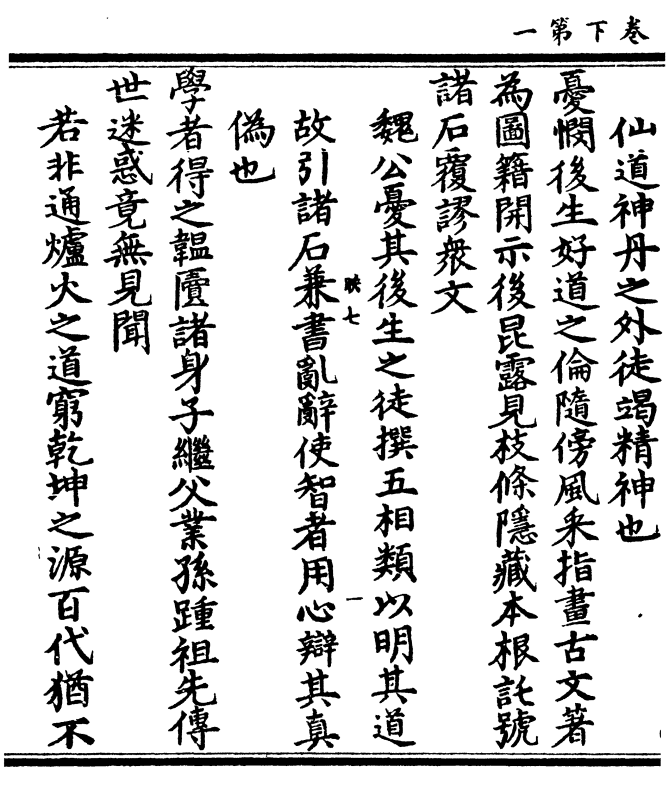 卷下第一
仙道神丹之外徒竭精神也
憂憫後生好道之倫隨傍風采指畫古文著
為圖籍開示後昆露見枝條隱藏本根託號
諸石覆謬衆文
魏公憂其後生之徒撰五相類以明其道
映七
一
故引諸石兼書亂辭使智者用心辯其真
偽也
學者得之韞匵諸身子繼父業孫踵祖先傳
世迷惑竟無見聞
若非通爐火之道窮乾坤之源百代猶不